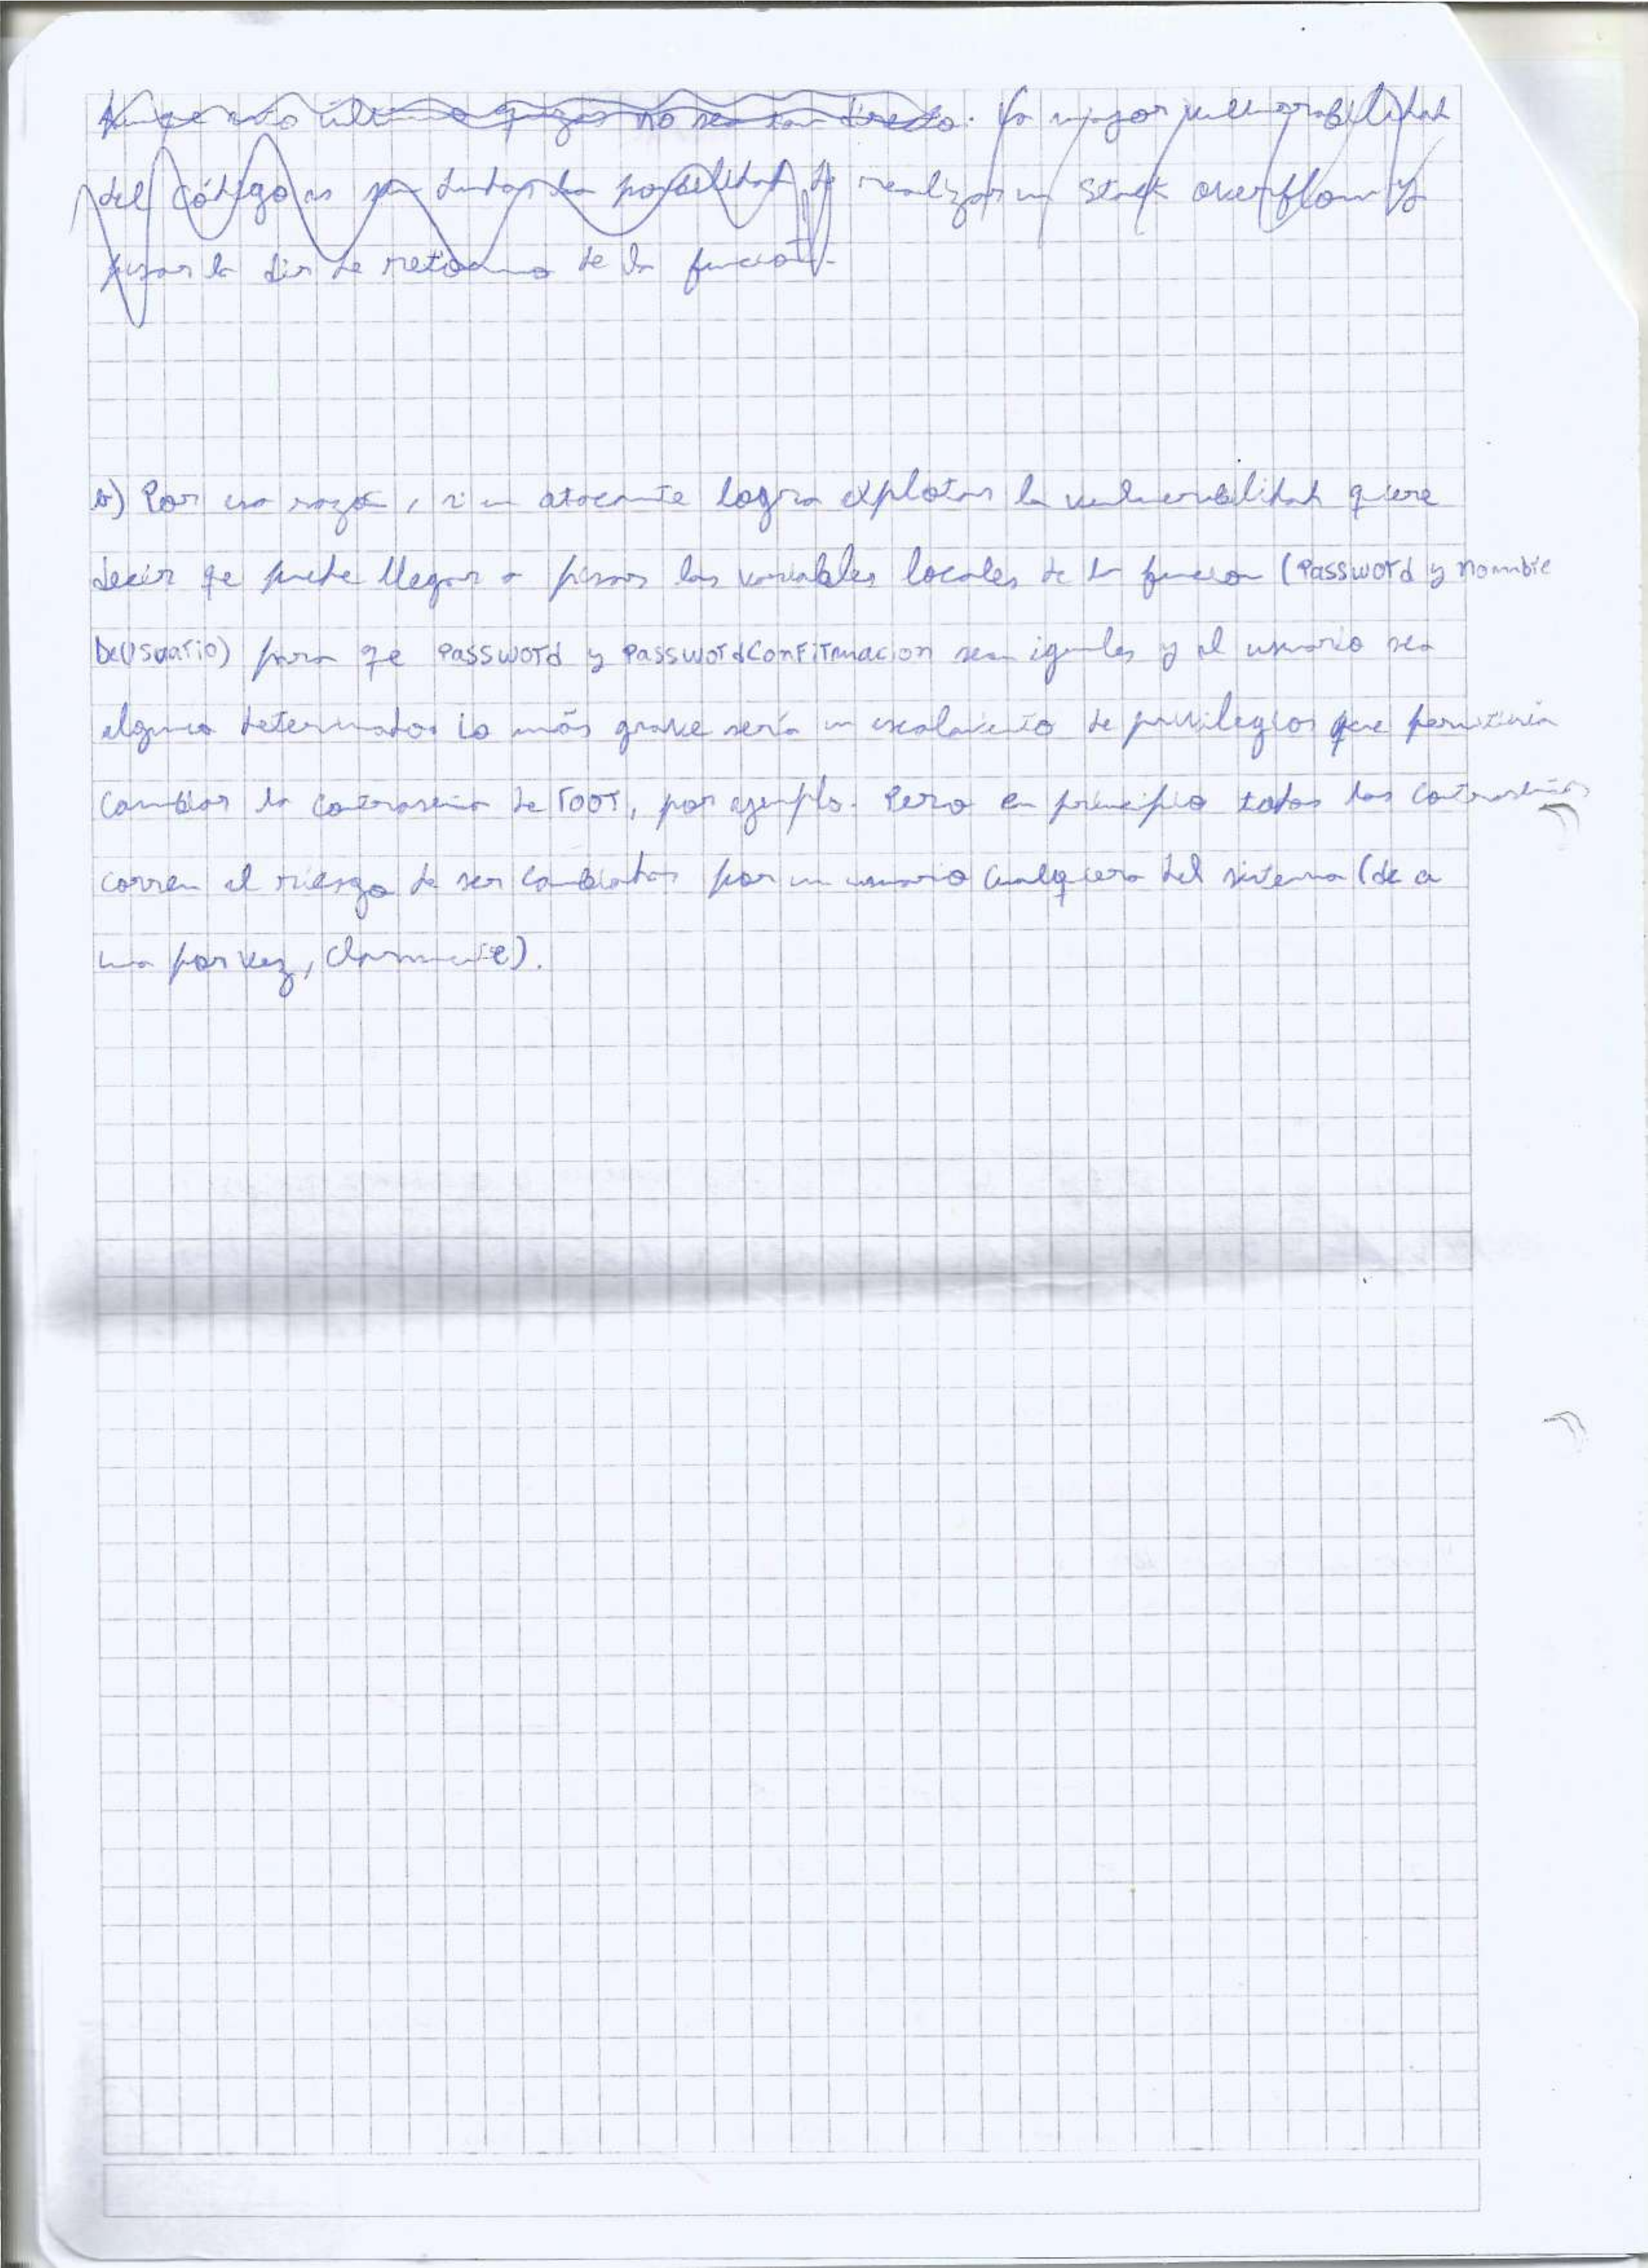 Aunqe esto último quizás no sea tan directo. La mayor vulnerabilidad
del código es sin dudas la posibilidad de realizar un stack overflow y
pisar la dir de retorno de la función.
b) Por esa razón, si un atacante logra explotar la vulnerabilidad quiere
decir qe puede llegar a pisar las variables locales de la función (Password y nombre
DeUsuario) para qe Password y PasswordConfirmacion sean iguales y el usuario sea
alguno determinado. Lo más grave sería un escalamiento de privilegios que permitiría
cambiar la contraseña de root, por ejemplo. Pero en principio todas las contraseñas
corren el riesgo de ser cambiadas por un usuario cualquiera del sistema (de a
una por vez, claramente).